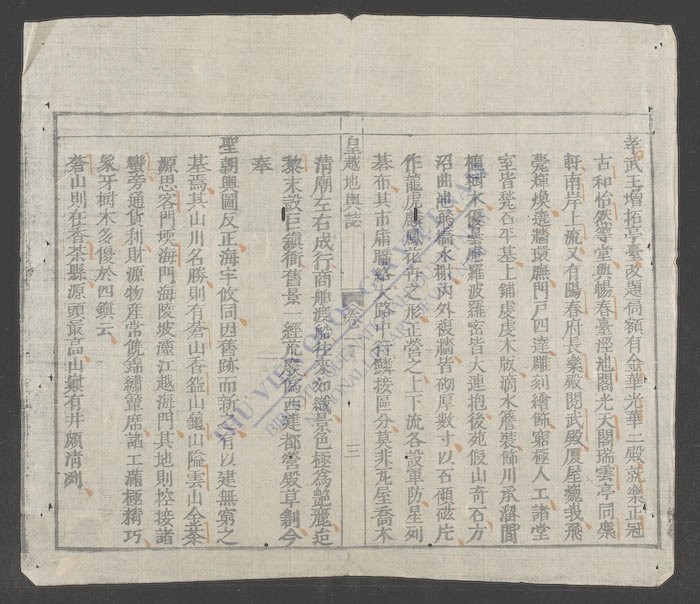 孝武王增拓亭臺改題扁額有金華光華二殿就樂正冠
古和怡然等堂與暢春臺涇池閣光天閣瑞雲亭同樂
軒南岸上流又有陽春府長樂殿閱武殿厦屋巍峩飛
甍輝煥邊墻環廡門戸四達雕刻繪飾窮極人工諸堂
室皆甃石平基上鋪虔虔木版滴水簷裝飾川承溜間
植樹木優曇庵羅波羅宻皆大連抱後苑假山奇石方
沼曲池飛橋水榭内外複墻皆砌厚數寸以石碩磁片
作龍虎麟鳳花卉之形正營之上下流各設軍防星列
碁布其市庸聯絡大路中行鱗接區分莫非瓦屋喬木
皇越地輿誌 卷一 三
清廟左右成行商舶渡船往來如織景色極為艶麗迨
黎末設巨鎮衙舊景一經荒廢僞西建都營殿草創今
奉
聖朝輿圖反正海宇攸同因舊跡而新有以建無窮之
基焉其山川名勝則有蒼山香鎰山龜山隘雲山金茶
源思客門㙪海門海陵坡瀘江越海門其地則控接諸
蠻旁通貨利財源物産常饒錦繡簟席諸工滿極精巧
象牙樹木多優於四鎮云
蒼山則在香茶縣源頭最高山巔有井頗清冽
THƯ VIỆN QUỐC GIA VIỆT NAM